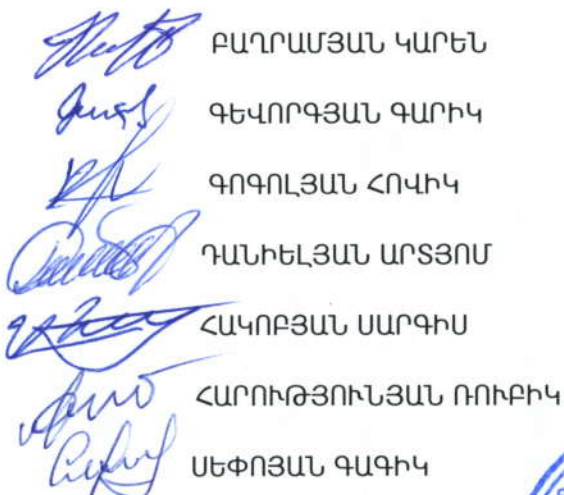 ԲԱՂՐԱՄՅԱՆ ԿԱՐԵՆ
ԳԵՎՈՐԳՅԱՆ ԳԱՐԻԿ
ԳՈԳՈԼՅԱՆ ՀՈՎԻԿ
ԴԱՆԻԵԼՅԱՆ ԱՐՏՅՈՄ
ՀԱԿՈԲՅԱՆ ՍԱՐԳԻՍ
ՀԱՐՈՒԹՅՈՒՆՅԱՆ ՌՈՒԲԻԿ
ՍԵՓՈՅԱՆ ԳԱԳԻԿ